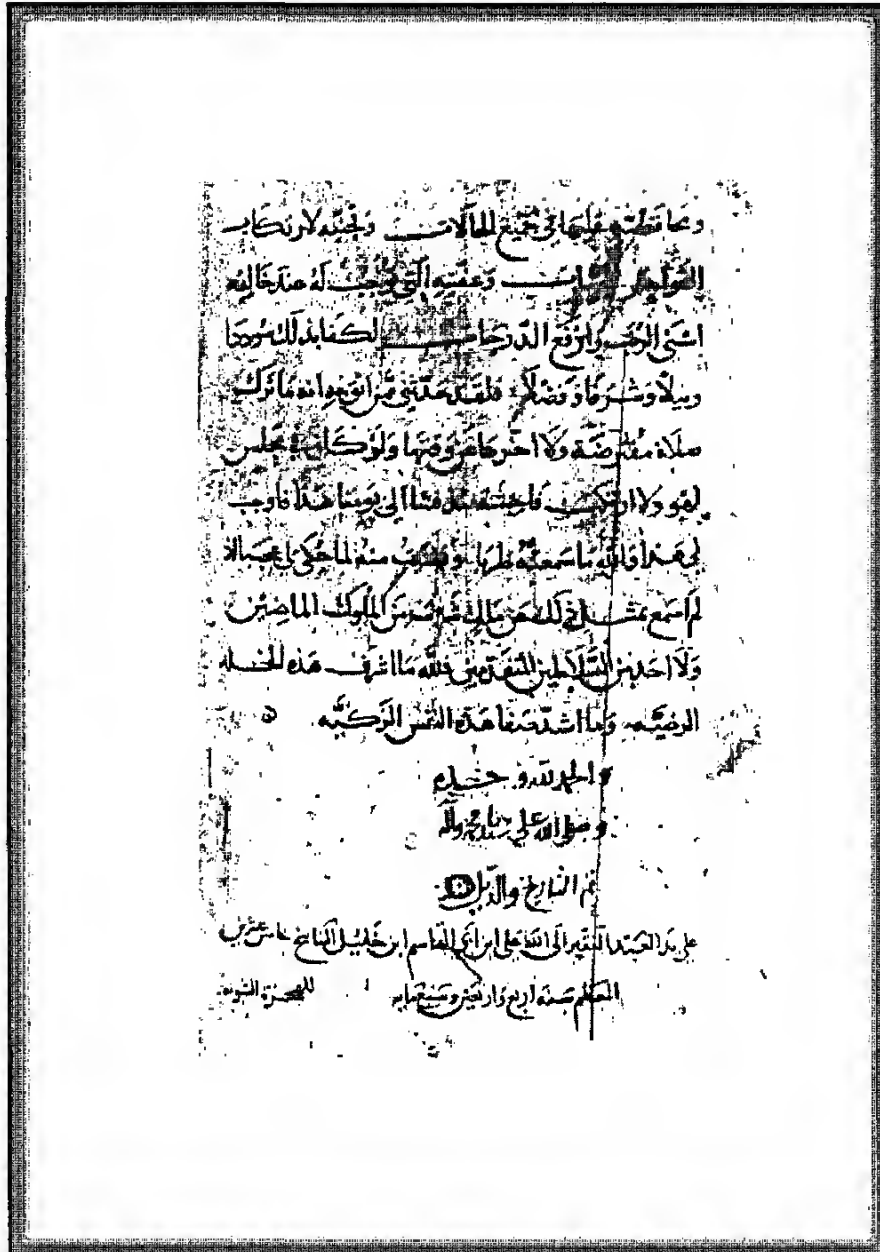 ومحافظته عليها في جميع الحالات وتجنبه لارتكاب
وعفته التي توجب له عند خالقه
اسنى الرتب وارفع الدرجات لكفا بذلك سوددا
ونبلا وشرفا وفضلا فلقد حدثني من اثق به انه ما ترك
صلاة مفترضة ولا اخرها عن وقتها ولو كان في مجلس
لهو ولا ارتكب فاحشة الى يومنا هذا فاوجب
لي هذا والله ما سمعته طربا منه لما حكى لي عجبا لا
لم اسمع بمثل ذلك عن ملك من الملوك الماضين
ولا احد من السلاطين المتقدمين فلله ما اشرف هذه الخله
الرضيه وما اشد صفا هذه النفس الزكيه
والحمد لله وحده
وصلى الله على سيدنا محمد وآله
تم التاريخ والذيل
على يد العبد الفقير الى الله على ابن ابي القاسم ابن خليل الناسخ خامس عشرين
المعظم سنة اربع واربعين وسبعمايه للهجرة النبويه